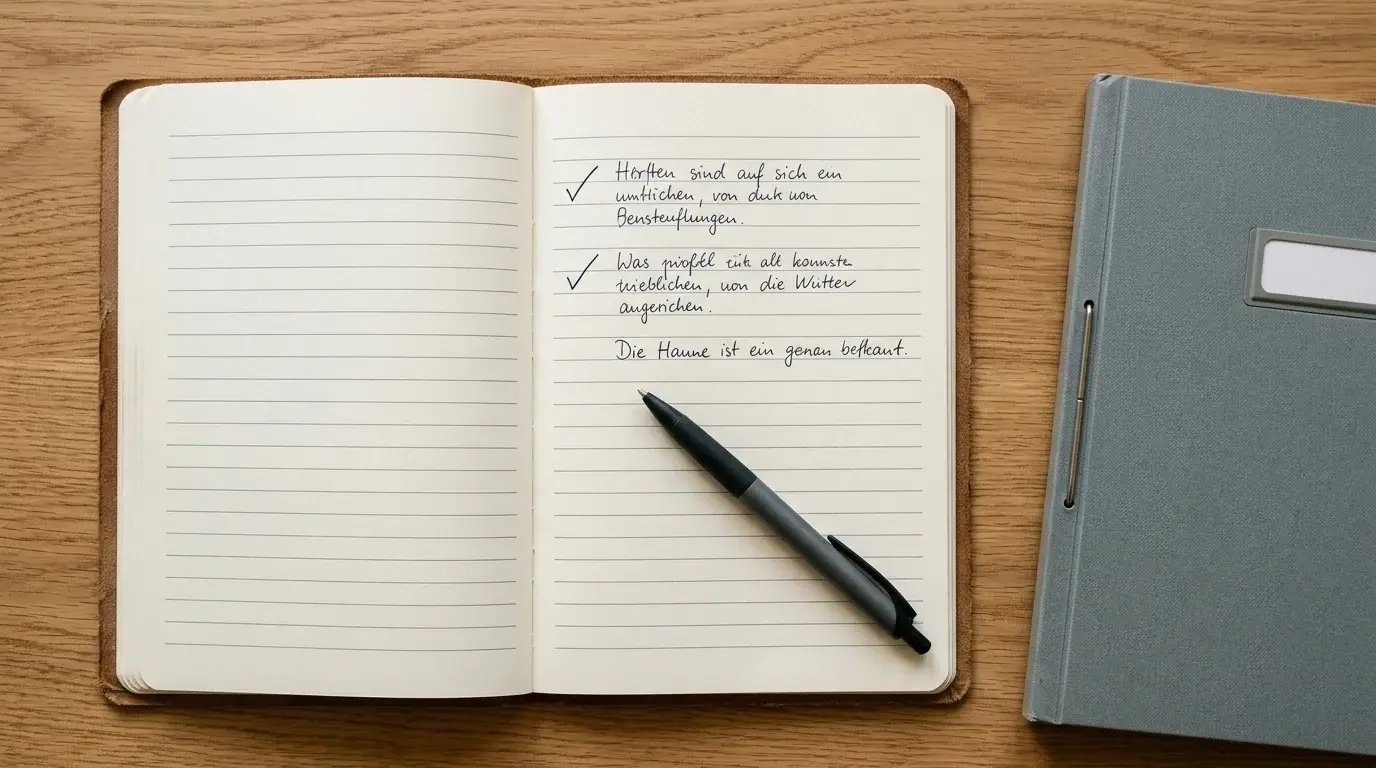 ✓ Herften sind auf sich ein
umtlichen, von duk von
Bensteuflungen.
✓ Was piofél cik alt konnste
trieblichen, von die Wütter
angerichen.
Die Haune ist ein genau befkaut.